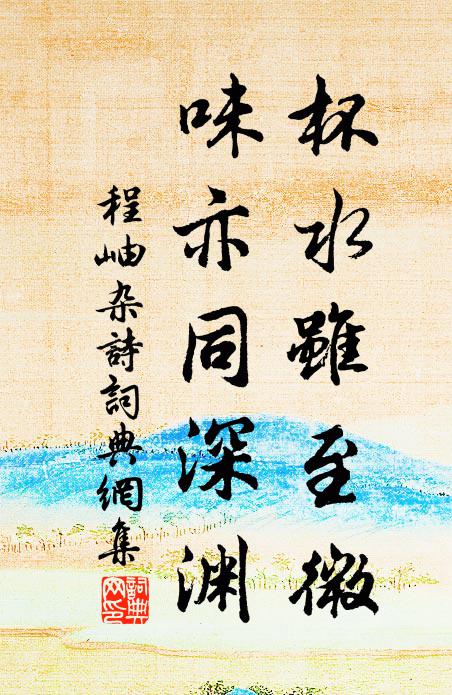 杯水雖至微
味亦同深淵
程岫杂詩詞典網集